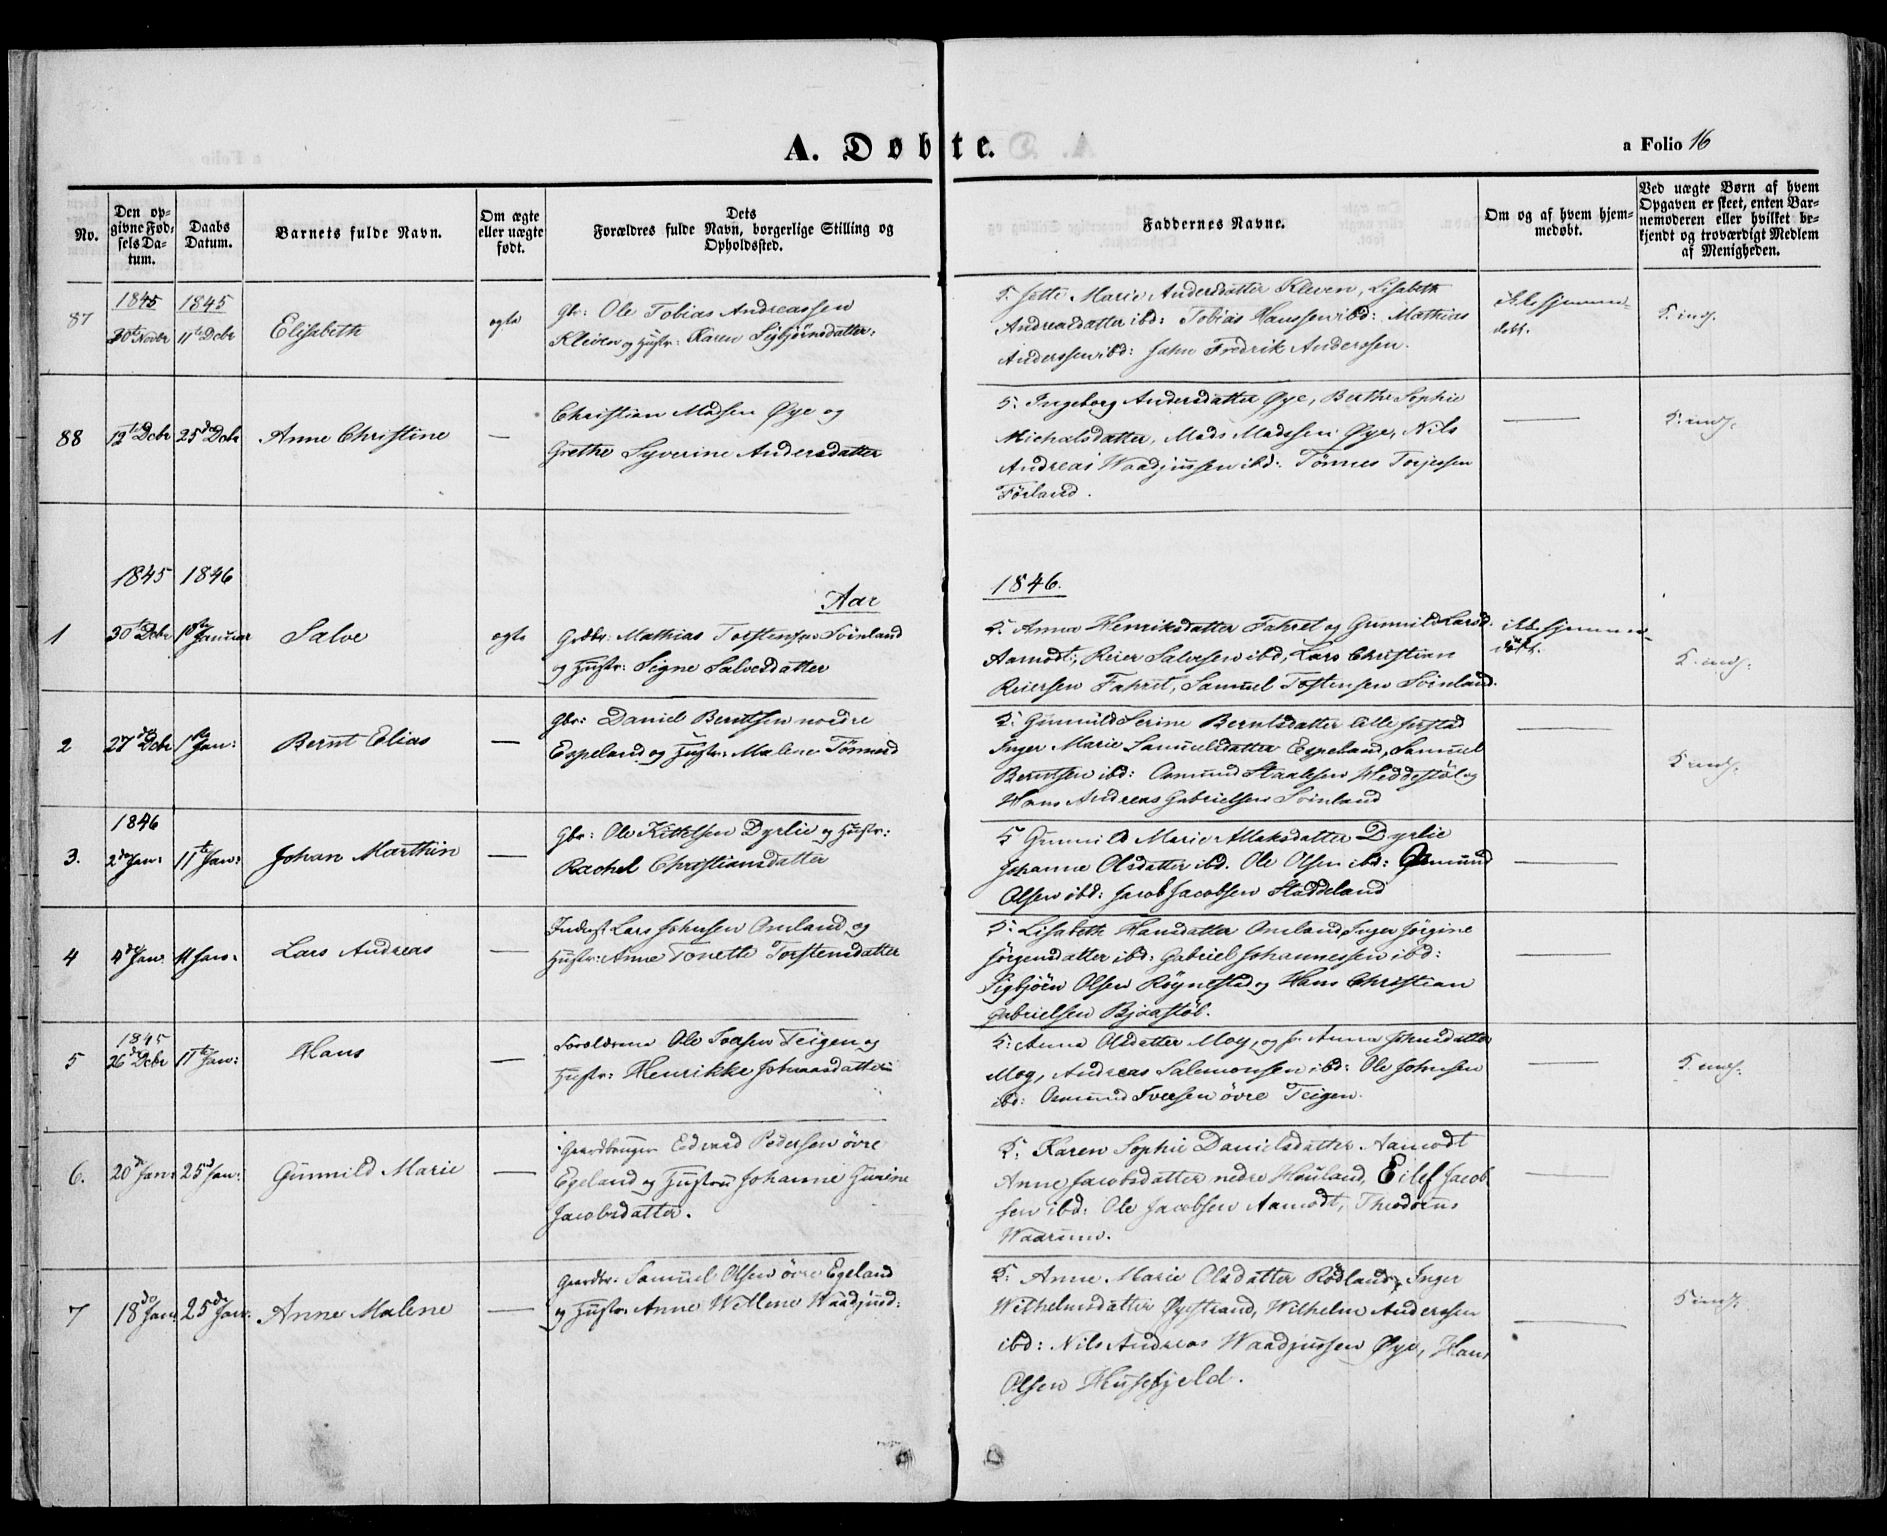 A. Døbte.
a Folio 16
No.
Den opgivne Fødsels Datum.
Daabs Datum.
Barnets fulde Navn.
Om ægte eller uægte født.
Dets Forældres fulde Navn, borgerlige Stilling og Opholdssted.
Faddernes Navne.
Om og af hvem hjemmedøbt.
Ved uægte Børn af hvem Opgaven er skeet, enten Barnemoderen eller hvilket bekjendt og troværdigt Medlem af Menigheden.
1845 1845
87 30te Novbr 11te Dcbr Elisabeth ægte
Gbr: Ole Tobias Andreassen
Kleven og Hustr: Karen Sigbjørnsdatter:
F. Jette Marie Andersdatter Kleven, Lisabeth
Andreasdatter ibd: Tobias Hanssen ibd: Mathias
Anderssen ibd: Jahn Fredrik Anderssen.
ikke hjemme-
døbt.
88 12te Dcbr 25de Dcbr Anne Christine —
Christian Madsen Øye og
Grethe Syverine Andersdatter
F: Ingeborg Andersdatter Øye, Berthe Sophie
Michalsdatter, Mads Madssen Øye, Nils
Andreas Waadjussen ibd: Tønnes Torjessen
Førland.
1845 1846
Aar 1846.
1 30te Dcbr 1ste Januar Salve ægte
Grdbr: Mathias Torstensen Soinland
og Hustr: Signe Salvesdatter
F. Anne Henriksdatter Fahret og Gunnild Larsd.
Aamodt, Reier Salvesen ibd, Lars Christian
Reiersen Fahret, Samuel Tostensen Soinland.
ikke hjemme-
døbt.
2 27de Dcbr 1ste Jan: Bernt Elias —
Gbr: Daniel Berntsen nordre
Espeland og Hustr: Malene Tønnesd
F: Gunnild Serine Berntsdatter
Inger Marie Samuelsdatter Espeland, Samuel
Berntsen ibd: Osmund Staalesen Heddestøl og
Hans Andreas Gabrielsen Soinland
1846
3. 2den Jan: 11te Jan: Johan Marthin —
Gbr: Ole Kittelsen Dyrlie og Hustr:
Rachel Christiansdatter
F Gunnild Marie Allaksdatter Dyrlie
Johanne Olsdatter ibd. Ole Olsen ibd: Osmund
Olsen ibd: Jacob Jacobsen Staddeland
4 4de Jan. 11 Jan: Lars Andreas —
Inderst Lars Johnsen Omland og
Hustr: Anne Tonette Torstensdatter
F: Lisabeth Hansdatter Omland, Inger Jørgine
Jørgensdatter ibd: Gabriel Johannessen ibd:
Sigbjørn Olsen Røynestad og Hans Christian
Gabrielsen Bjaastøl.
1845
5 26de Dcbr 11te Jan: Hans —
Forældrene Ole Iversen Teigen og
Hustr: Henrikke Johnsdatter
F: Anne Olsdatter Moy, og Anne Johnsdatter
Moy, Andreas Salemonsen ibd: Ole Johnsen
ibd: Osmund Iversen øvre Teigen.
6. 20de Jan: 25de Jan: Gunnild Marie —
Gaardbruger Edvard Pedersen øvre
Egeland og Hustru Johanne Gurine
Jacobsdatter.
F. Karen Sophie Danielsdatter Aamodt
Anne Jacobsdatter nedre Houland, Eilef Jacob-
sen ibd: Ole Jacobsen Aamodt, Theodorus
7 18de Jan: 25de Jan: Anne Malene —
Gaardbr. Samuel Olsen øvre Egeland
og Hustr: Anne Willene Waadjusd:
F: Anne Marie Olsdatter Rødland, Inger
Wilhelmsdatter Øyestrand, Wilhelm Anderssen
ibd: Nils Andreas Waadjussen Øye, Hans
Olsen Husefjeld.